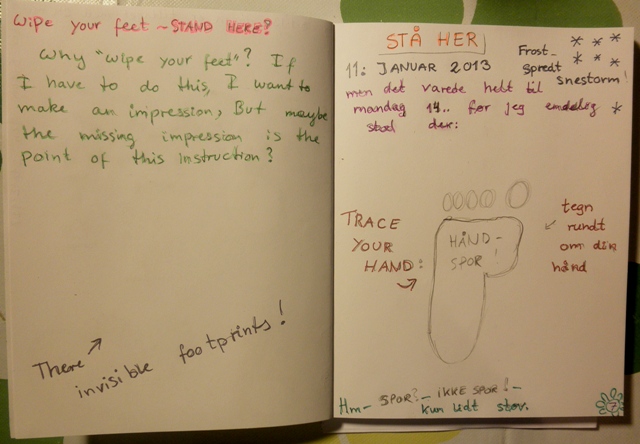 Wipe your feet ~ STAND HERE?
Why "wipe your feet"? If
I have to do this, I want to
make an impression, But maybe
the missing impression is the
point of this instruction?
There
invisible footprints!
STÅ HER
11: JANUAR 2013
Frost-
Spredt
snestorm!
men det varede helt til
mandag 14.. før jeg endelig
stod der:
TRACE
YOUR
HAND:
HÅND-
SPOR!
tegn
rundt
om din
hånd
Hm- SPOR? - IKKE SPOR! -
kun lidt støv.